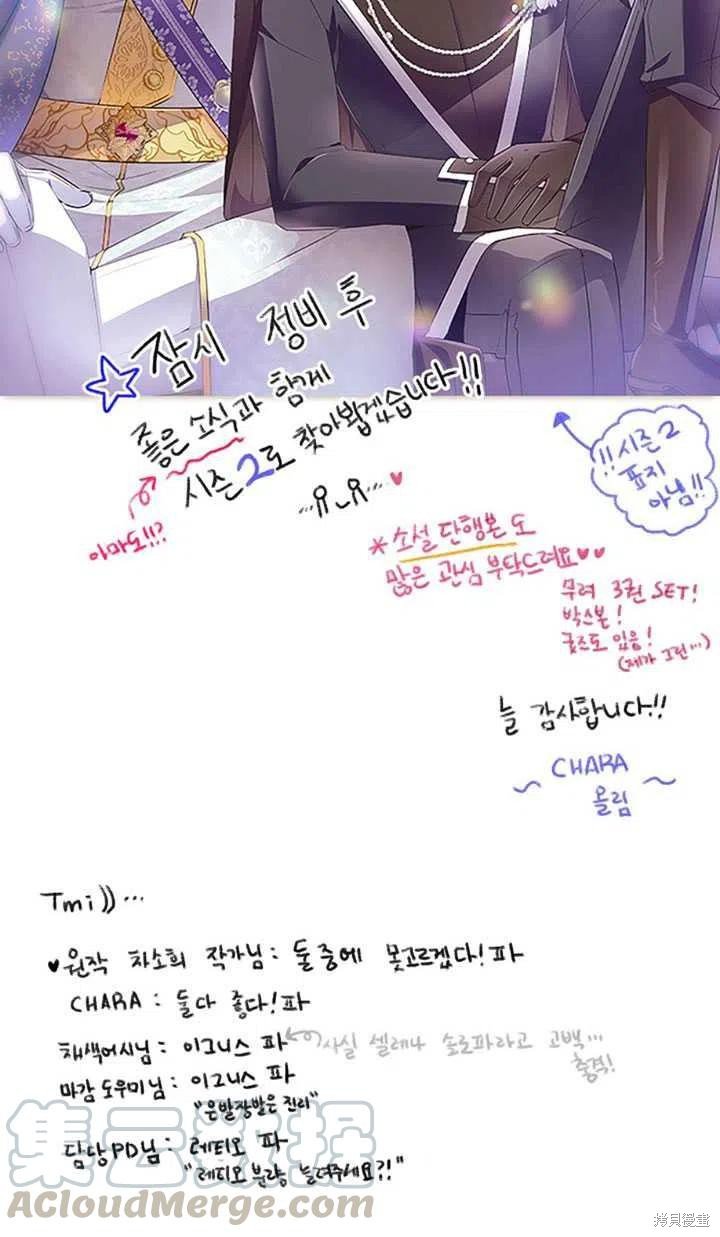 ☆잠시 정비 후
좋은 소식과 함께
시즌2로 찾아뵙겠습니다!!
아마도!!?
!!시즌2
표지
아님!!
*소설 단행본도
많은 관심 부탁드려요♥♥
무려 3권 SET!
박스본!
굿즈도 있음!
(제가 그린…)
늘 감사합니다!!
~ CHARA ~
올림
Tmi))…
♥원작 차소희 작가님: 둘중에 못고르겠다!파
CHARA: 둘다 좋다!파
채색어시님: 이그니스 파
사실 셀레나 솔로파라고 고백…
충격!
마감도우미님: 이그니스 파
"은발장발은 진리"
담당PD님: 레티오 파
"레티오 분량 늘려주세요?!"
集云数据
AcloudMerge.com
拷貝漫畫